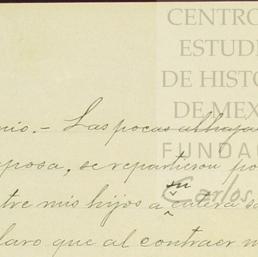 CENTRO
ESTUDI
DE HISTO
DE MEX
FUNDA
Carlos
nio.- Las pocas alhajas
sposa, se repartieron po
tre mis hijos a
su
entera sa
laro que al contraer m